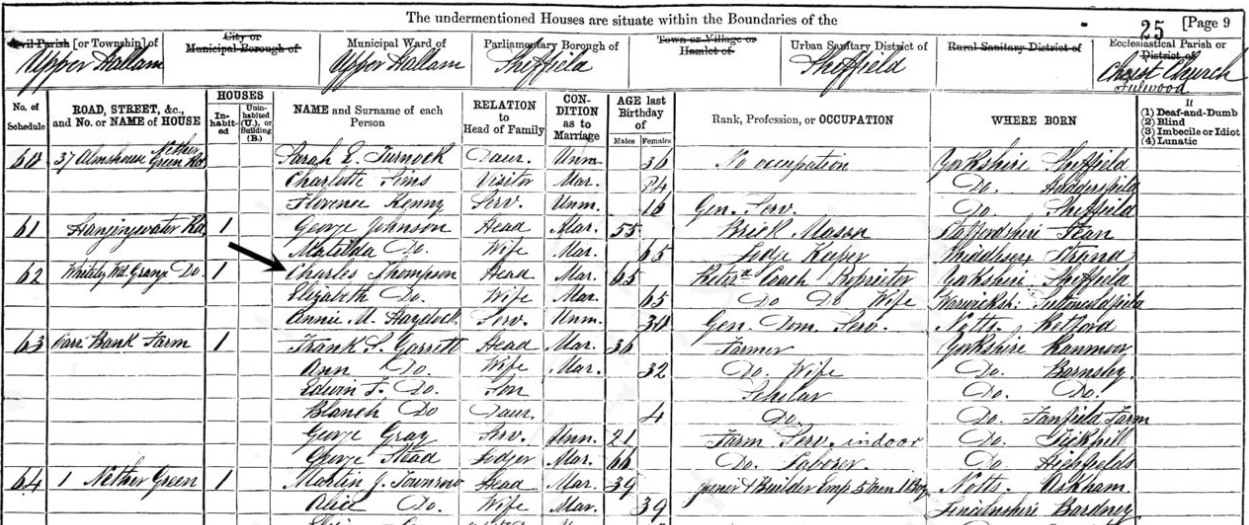 The undermentioned Houses are situate within the Boundaries of the
25 [Page 9
Civil Parish [or Township] of
City or Municipal Borough of
Municipal Ward of
Parliamentary Borough of
Town or Village or Hamlet of
Urban Sanitary District of
Rural Sanitary District of
Ecclesiastical Parish or District of
Upper Hallam Upper Hallam Sheffield Sheffield Christ Church Fulwood
No. of Schedule
ROAD, STREET, &c., and No. or NAME of HOUSE
HOUSES
Inhabited
Uninhabited (U.), or Building (B.)
NAME and Surname of each Person
RELATION to Head of Family
CONDITION as to Marriage
AGE last Birthday of
Males Females
Rank, Profession, or OCCUPATION
WHERE BORN
If
(1) Deaf-and-Dumb
(2) Blind
(3) Imbecile or Idiot
(4) Lunatic
60 37 Almshouse Nether Green Rd Sarah E. Turnock Daur. Unm. 36 No occupation Yorkshire Sheffield
Charlotte Sims Visitor Mar. 84 Do. Huddersfield
Florence Kenny Serv. Unm. 16 Gen. Serv. Do. Sheffield
61 Hangingwater Rd 1 George Johnson Head Mar. 55 Brick Mason Staffordshire Tean
Matilda Do. Wife Mar. 65 Lodge Keeper Middlesex Strand
62 Whitely Wd. Grange Do. 1 Charles Thompson Head Mar. 65 Retd. Coach Proprietor Yorkshire Sheffield
Elizabeth Do. Wife Mar. 65 Do Do Wife Warwicksh:
Annie M. Haydock Serv. Unm. 30 Gen. Dom. Serv. Notts. Retford
63 Carr Bank Farm 1 Frank S. Garrett Head Mar. 36 Farmer Yorkshire Ranmoor
Ann Do. Wife Mar. 32 Do. Wife Do. Barnsley
Edwin F. Do. Son Scholar Do. Do.
Blanch Do Daur. 4 Do. Do. Fanfield Farm
George Gray Serv. Unm. 21 Farm Serv. indoor Do. Tickhill
George Stead Lodger Mar. 66 Do. Laborer. Do. Highfields
64 1 Nether Green 1 Martin J. Townrow Head Mar. 39 Joiner & Builder Emp 5 Men 1 Boy Notts. Arkham.
Alice Do. Wife Mar. 39 Lincolnshire Bardney